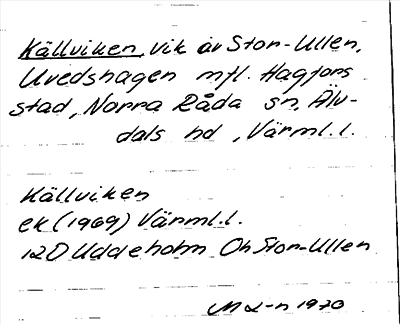 Källviken, vik av Stor-Ullen,
Uvedshagen mfl. Hagfors
stad, Norra Råda sn, Älv-
dals hd, Värml.l.
Källviken
ek (1969) Värml.l.
12D Uddeholm Öh Stor-Ullen
M L-n 1970